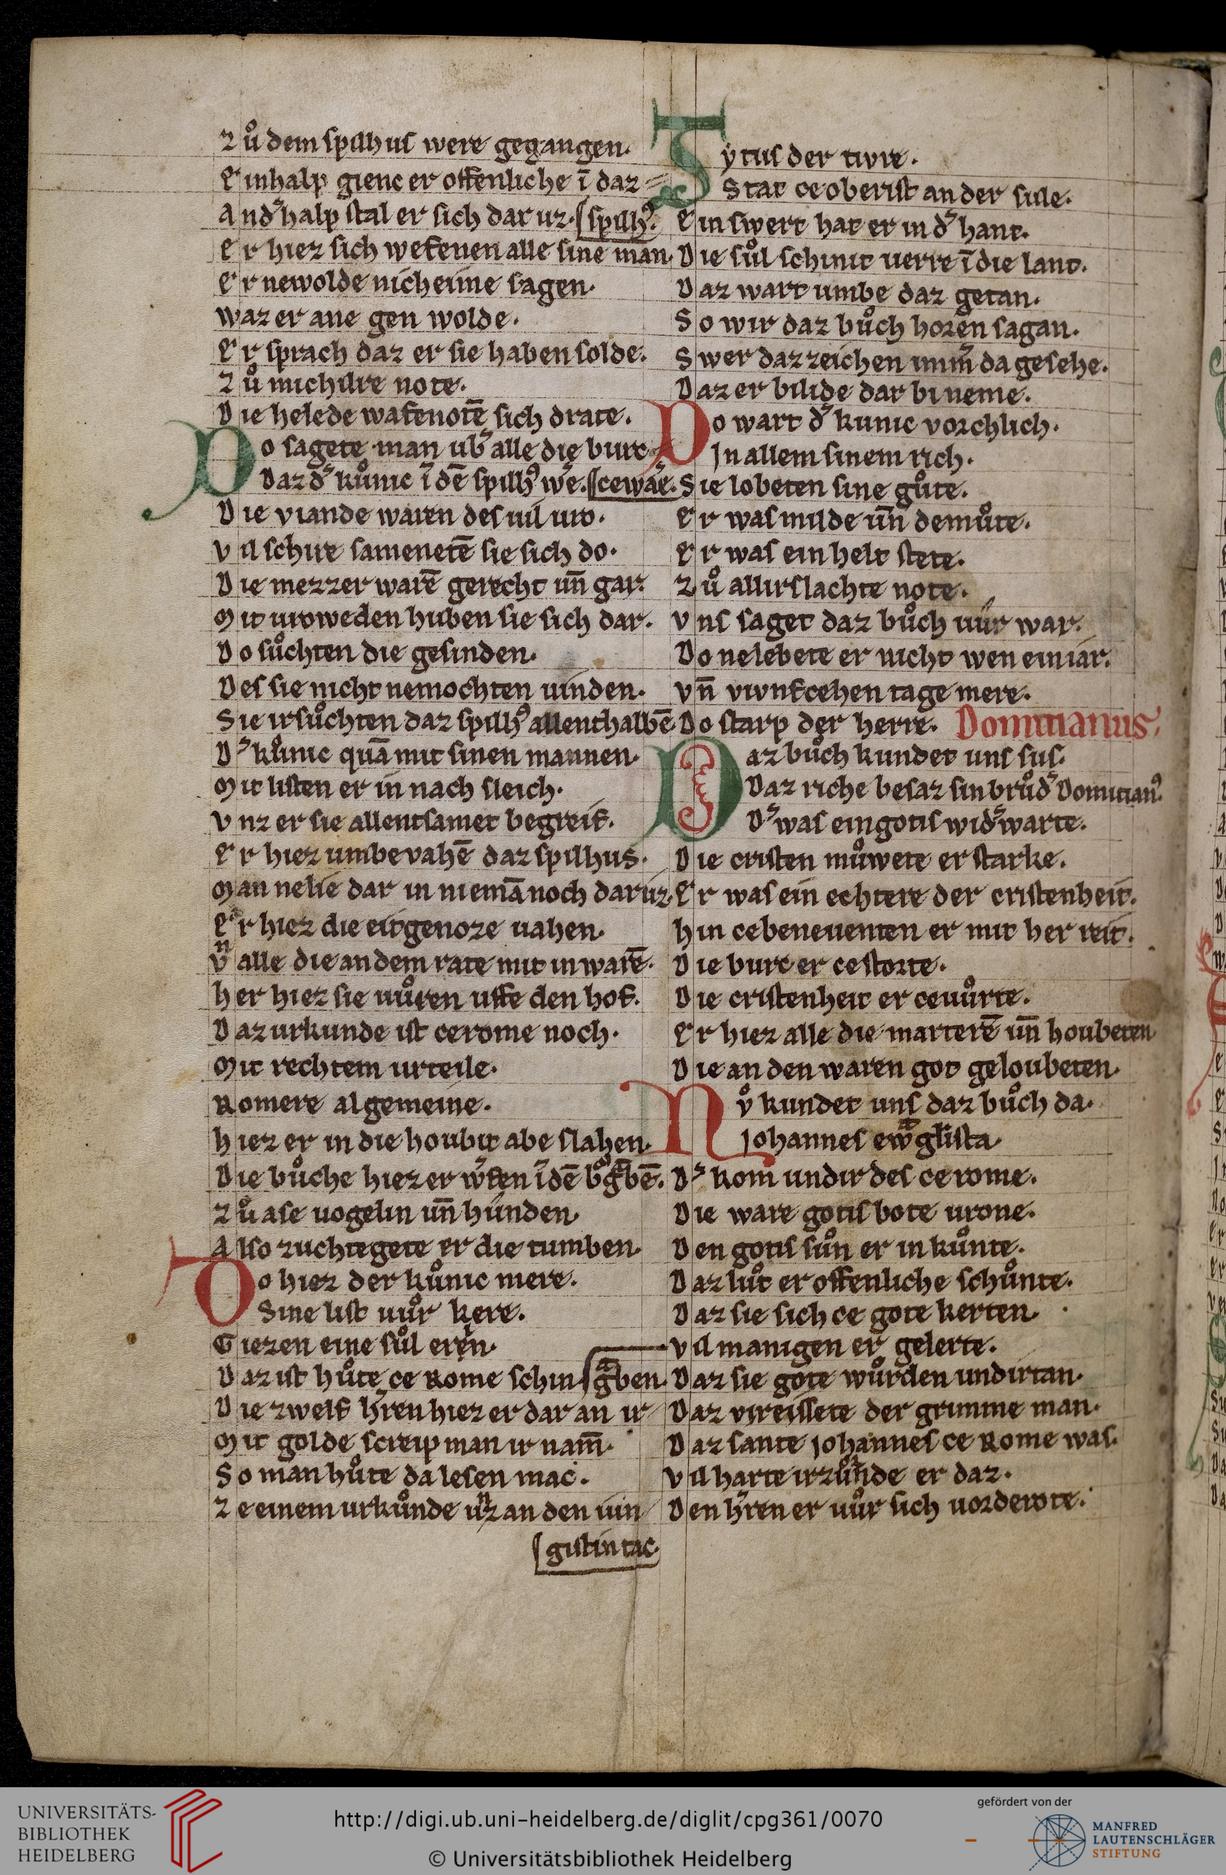 Zů dem spilhus were gegangen.
Einhalp gienc er offenliche ī daz
Andʾhalp stal er sich dar uz. spilhꝰ.
Er hiez sich wefenen alle sine man.
Er newolde nicheime sagen.
waz er ane gen wolde.
Er sprach daz er sie haben solde.
Zů michilre note.
Die helede wafenotē sich drate.
Do sagete man ubʾ alle die burc
Daz dʾ kůnic ī dē spilhꝰ wēʾ. cewaēʾ.
Die viande waren des uil uro.
Vil schire samenetē sie sich do.
Die mezzer warē gerecht uñ gar.
Mit uroweden huben sie sich dar.
Do sůchten die gesinden.
Des sie nicht nemochten uinden.
Sie irsůchten daz spilhꝰ allenthalbē
Dʾ kůnic quā mit sinen mannen.
Mit listen er in nach sleich.
Vnz er sie allentsamet begreif.
Er hiez umbevahē daz spilhus.
Man nelie dar in niemā noch daruz.
Er hiez die eitgenoze uahen.
vn̄ alle die an dem rate mit in warē.
Her hiez sie uůren uffe den hof.
Daz urkunde ist ce rome noch.
Mit rechtem urteile.
Romere algemeine.
Hiez er in die houbit abe slahen.
Die bůche hiez er wʾfen ī dē bůrgrabē.
Zů ase uogelin uñ hunden
Also zuchtegete er die tumben.
Do hiez der kůnic mere.
Sine list uůr kere.
Giezen eine sůl erēn.
Daz ist hůte ce Rome schin graben.
Die zwelf hʾren hiez er dar an ir
Mit golde screip man ir nam̄.
So man hůte da lesen mac.
Ze einem urkůnde unz an den iun
gistin tac.
Tytus der tivre.
Stat ce oberist an der sule.
Ein swert hat er in dʾ hant.
Die sůl schinit uerre ī die lant.
Daz wart umbe daz getan.
So wir daz bůch horen sagan.
Swer daz zeichen immʾ da gesehe.
Daz er bilide dar bi neme.
Do wart dʾ kunic vorchlich.
In allem sinem rich.
Sie lobeten sine gůte.
Er was milde uñ demůte.
Er was ein helt stete.
Zů allirslachte note.
Vns saget daz bůch uůr war.
Do nelebete er nicht wen ein iar.
Vn̄ vivnfcehen tage mere.
Do starp der herre. Domitianus.
Daz bůch kundet uns sus.
Daz riche besaz sin brůdʾ Domitianꝰ.
Dʾ was ein gotis widʾwarte.
Die cristen můwete er starke.
Er was ein echtere der cristenheit.
Hin ce beneuenten er mit her reit.
Die burc er cestorte.
Die cristenheit er ceuůrte.
Er hiez alle die marterē uñ houbeten
Die an den waren got geloubeten.
Nů kundet uns daz bůch da.
Johannes ewāglista
Dʾ kom undir des ce rome.
Die ware gotis bote urone.
Den gotis sůn er in kůnte.
Daz lůt er offenliche schůnte.
Daz sie sich ce gote kerten.
Vil manigen er gelerte.
Daz sie gote wůrden undirtan.
Daz vireissete der grimme man.
Daz sante Johannes ce Rome was.
Vil harte irzůrnde er daz.
Den hʾren er uůr sich uorderote.
UNIVERSITÄTS-
BIBLIOTHEK
HEIDELBERG
http://digi.ub.uni-heidelberg.de/diglit/cpg361/0070
© Universitätsbibliothek Heidelberg
gefördert von der
MANFRED
LAUTENSCHLÄGER
STIFTUNG